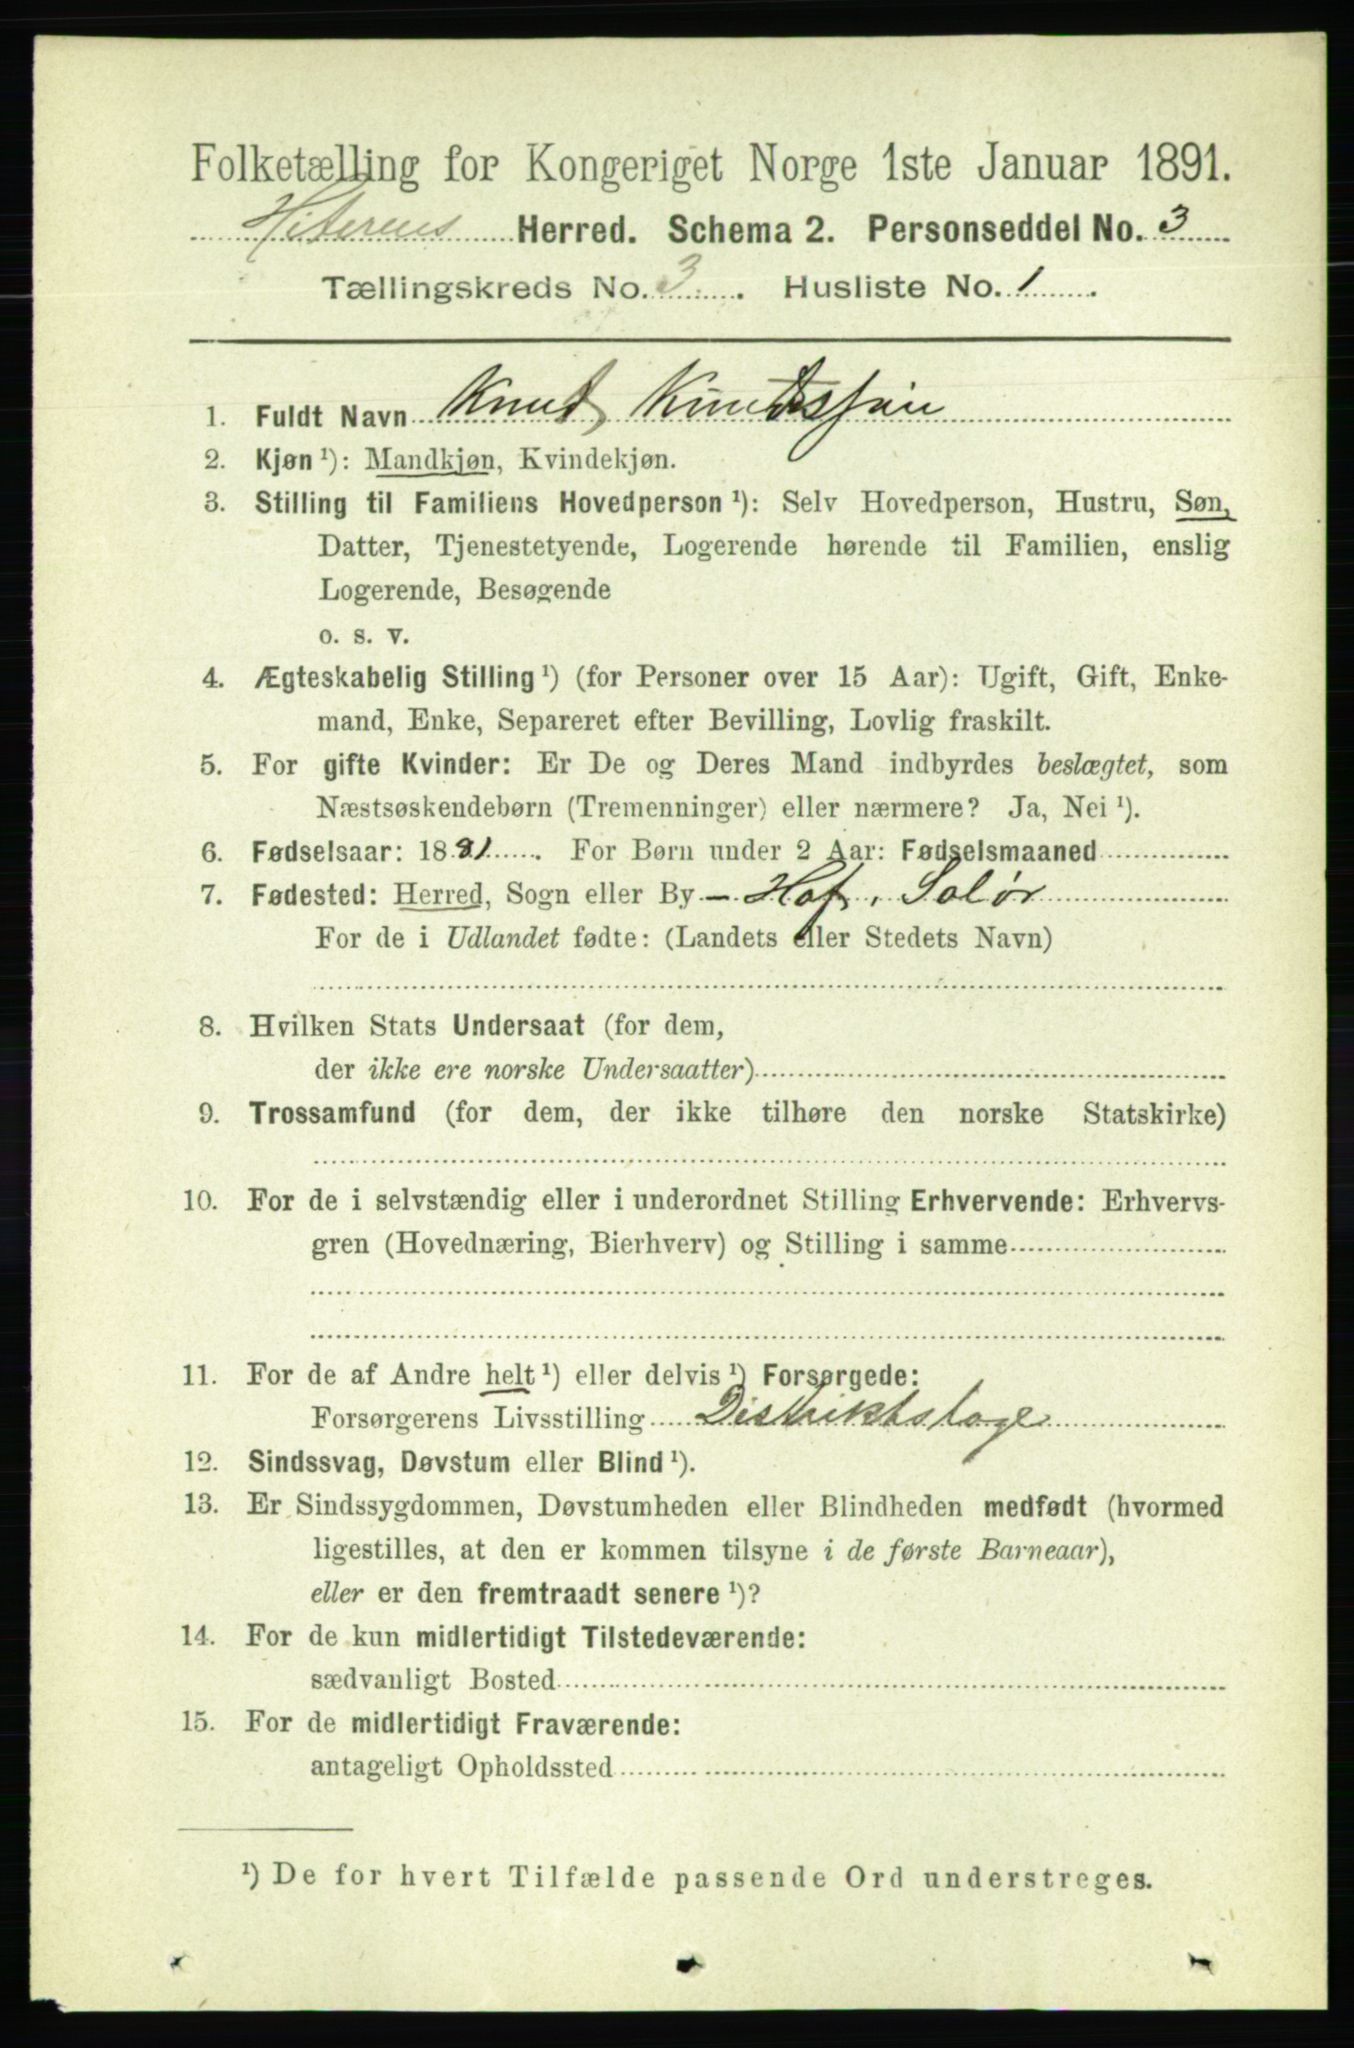 Folketælling for Kongeriget Norge 1ste Januar 1891.
Hiterens Herred. Schema 2. Personseddel No. 3
Tællingskreds No. 3. Husliste No. 1.
1. Fuldt Navn Knud Knudssøn
2. Kjøn ¹): Mandkjøn, Kvindekjøn.
3. Stilling til Familiens Hovedperson ¹): Selv Hovedperson, Hustru, Søn,
Datter, Tjenestetyende, Logerende hørende til Familien, enslig
Logerende, Besøgende
o. s. v.
4. Ægteskabelig Stilling ¹) (for Personer over 15 Aar): Ugift, Gift, Enke-
mand, Enke, Separeret efter Bevilling, Lovlig fraskilt.
5. For gifte Kvinder: Er De og Deres Mand indbyrdes beslægtet, som
Næstsøskendebørn (Tremenninger) eller nærmere? Ja, Nei ¹).
6. Fødselsaar: 1881. For Børn under 2 Aar: Fødselsmaaned
7. Fødested: Herred, Sogn eller By - Hof, Solør
For de i Udlandet fødte: (Landets eller Stedets Navn)
8. Hvilken Stats Undersaat (for dem,
der ikke ere norske Undersaatter)
9. Trossamfund (for dem, der ikke tilhøre den norske Statskirke)
10. For de i selvstændig eller i underordnet Stilling Erhvervende: Erhvervs-
gren (Hovednæring, Bierhverv) og Stilling i samme
11. For de af Andre helt ¹) eller delvis ¹) Forsørgede:
Forsørgerens Livsstilling Distriktslæge
12. Sindssvag, Døvstum eller Blind ¹).
13. Er Sindssygdommen, Døvstumheden eller Blindheden medfødt (hvormed
ligestilles, at den er kommen tilsyne i de første Barneaar),
eller er den fremtraadt senere ¹)?
14. For de kun midlertidigt Tilstedeværende:
sædvanligt Bosted
15. For de midlertidigt Fraværende:
antageligt Opholdssted
¹) De for hvert Tilfælde passende Ord understreges.